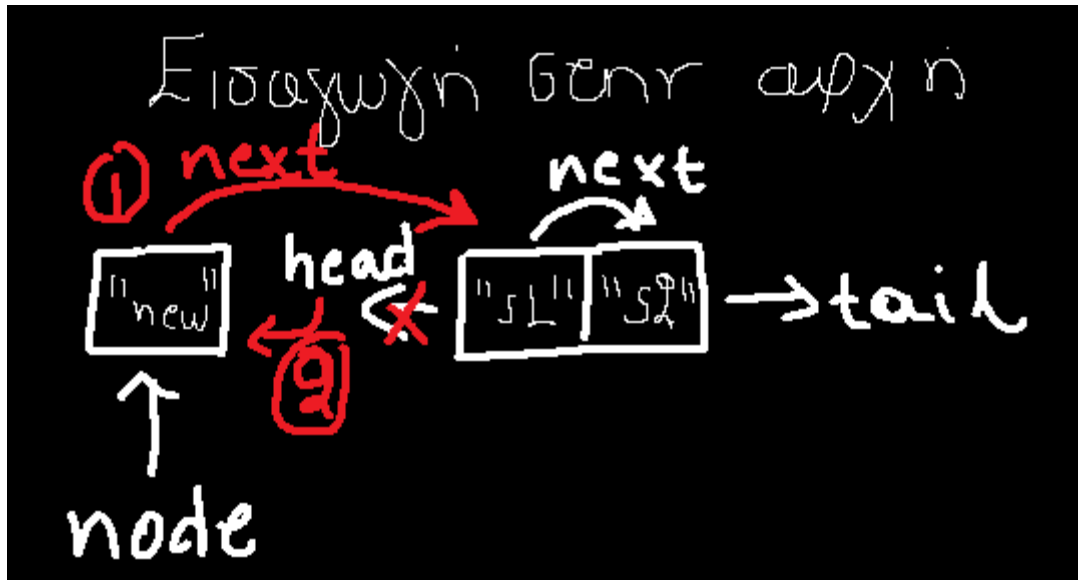 Εισαγωγή στην αρχή
① next next
head
"new" "s1" "s2" tail
②
node